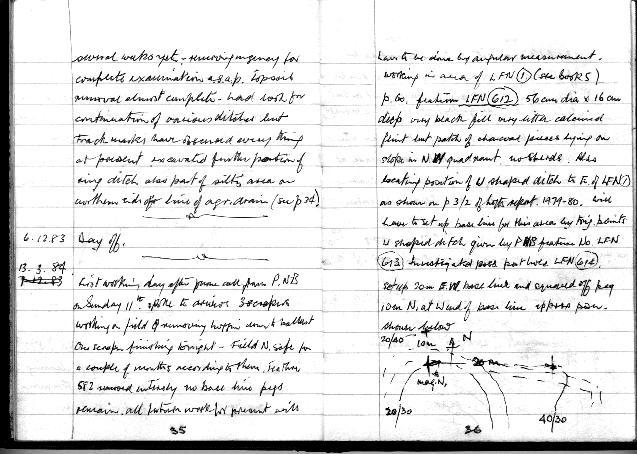 several weeks yet, - removing urgency for
complete examination a.s.a.p. topsoil
removal almost complete - had look for
continuation of various ditches but
track marks have obscured every thing
at present excavated further portion of
ring ditch also part of silty area on
northern side of line of agr. drain (see p 24).
6.12.83 Day off.
13.3.84
7.12.83
First working day after phone call from P.NB
on Sunday 11th to advise 3 scrapers
working on field removing
One scraper finishing tonight - Field N. safe for
a couple of months according to them. Section
582 removed entirely no base line pegs
remain. all future work for present will
35
have to be done by angular measurement.
Working in area of LFN 1 (see book 5)
p. 60. feature LFN 612 56cm dia x 16cm
deep very black fill very little calcined
flint but patch of charcoal pieces lying on
slope in N.W quadrant. no sherds. Also
locating position of U shaped ditch to E. of LFN 1
as shown on p 3/2 of report. 1979-80. will
have to set up base line for this area by trig. points
U shaped ditch given by P NB feature No LFN
613 Investigated poss post hole LFN 614
set up 20m E.W. base line and squared off peg
10m N, at W end of base line approx posn.
shown below
20/40
10m
N
20m
mag. N.
20/30
40/30
36